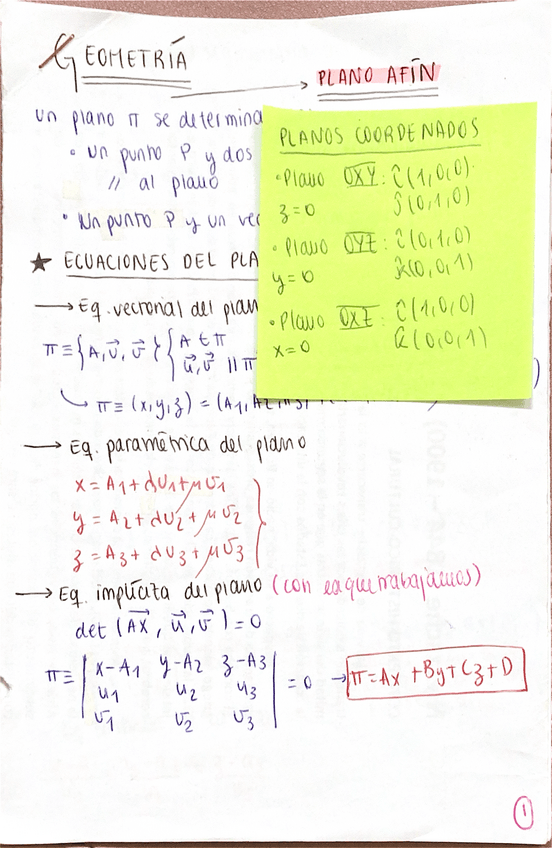 GEOMETRÍA
PLANO AFÍN
Un plano π se determina
• Un punto P y dos
// al plano
• Un punto P y un vec
PLANOS COORDENADOS
• Plano OXY: î(1,0,0).
z=0 ĵ(0,1,0)
• Plano OYZ: î(0,1,0)
y=0 k̂(0,0,1)
• Plano OXZ: î(1,0,0)
x=0 k̂(0,0,1)
★ ECUACIONES DEL PLA
→ Eq. vectorial del plan
π≡{A,u⃗,v⃗} { A ∈ π
u⃗,v⃗ // π
↳ π≡ (x,y,z) = (A1, A2
→ Eq. paramétrica del plano
x = A1 + λu1 + μv1
y = A2 + λu2 + μv2
z = A3 + λu3 + μv3
→ Eq. implícita del plano (con la que trabajamos)
det (AX⃗, u⃗, v⃗) = 0
π≡ | x-A1 y-A2 z-A3 |
| u1 u2 u3 | = 0 → π=Ax+By+Cz+D
| v1 v2 v3 |
1